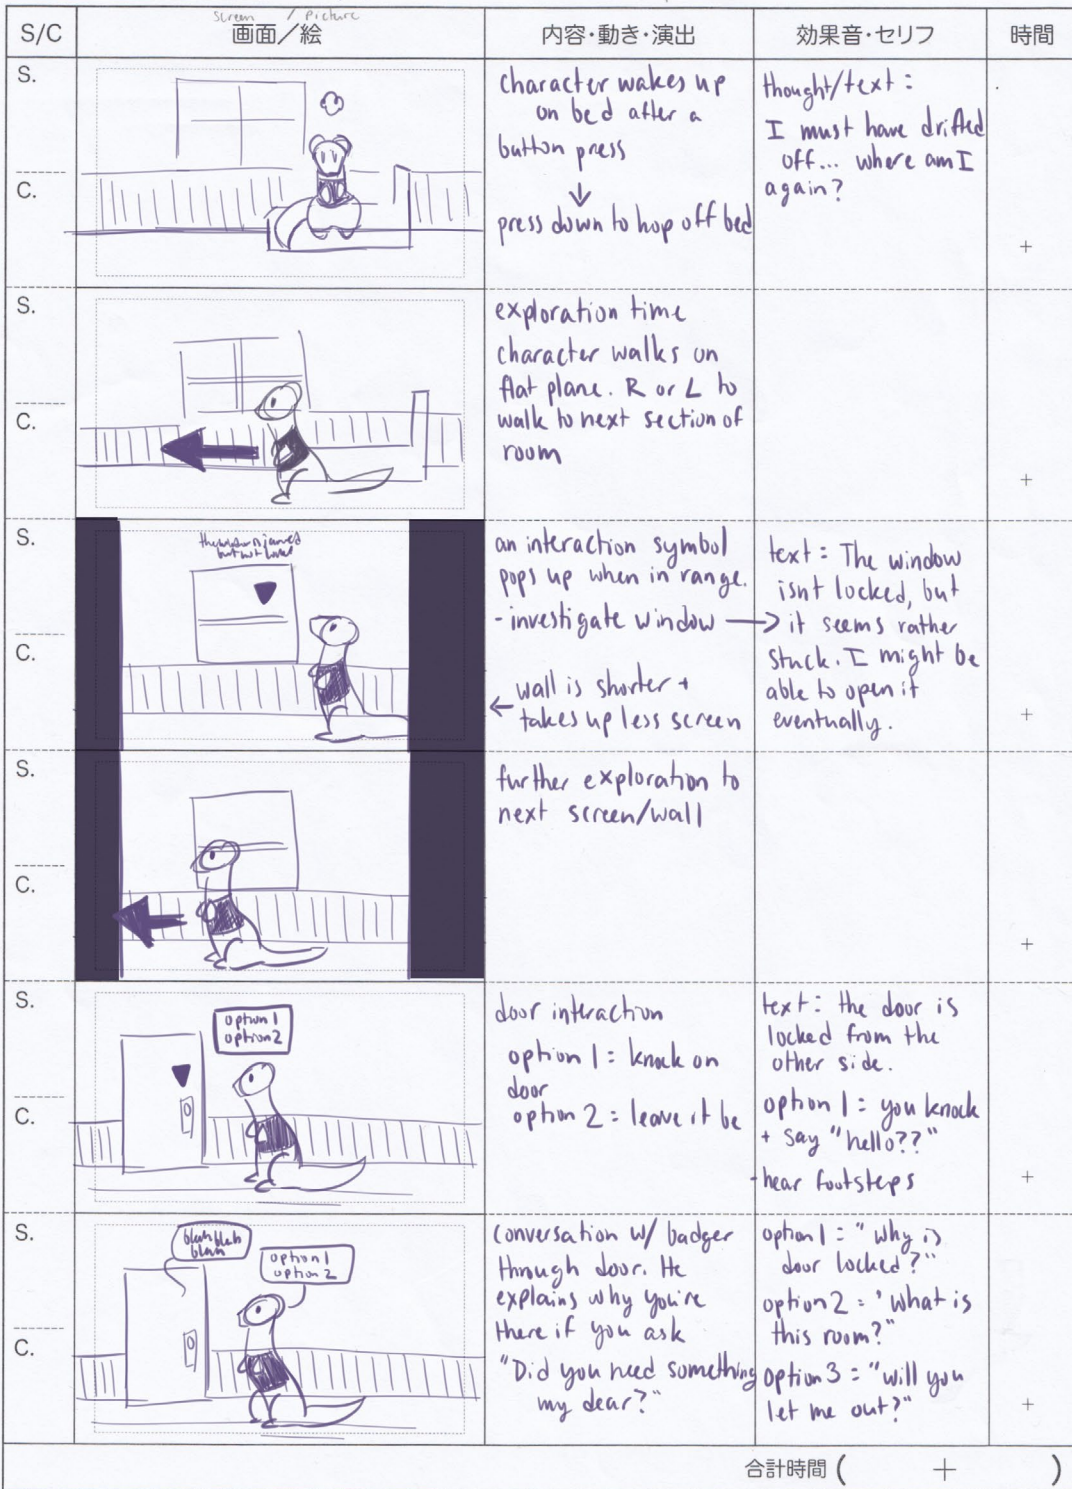 screen / picture
S/C 画面／絵 内容・動き・演出 効果音・セリフ 時間
S.
C.
character wakes up
on bed after a
button press
↓
press down to hop off bed
thought/text:
I must have drifted
off... where am I
again?
+
S.
C.
exploration time
character walks on
flat plane. R or L to
walk to next section of
room
+
S.
C.
but not locked
an interaction symbol
pops up when in range.
- investigate window →
← wall is shorter +
takes up less screen
text: The window
isnt locked, but
it seems rather
stuck. I might be
able to open it
eventually.
+
S.
C.
further exploration to
next screen/wall
+
S.
C.
option 1
option 2
door interaction
option 1 = knock on
door
option 2 = leave it be
text: the door is
locked from the
other side.
option 1 = you knock
+ say "hello??"
- hear footsteps
+
S.
C.
blah blah
blah
option 1
option 2
conversation w/ badger
through door. He
explains why you're
there if you ask
"Did you need something
my dear?"
option 1 = "why is
door locked?"
option 2 = "What is
this room?"
option 3 = "will you
let me out?"
+
合計時間 ( + )